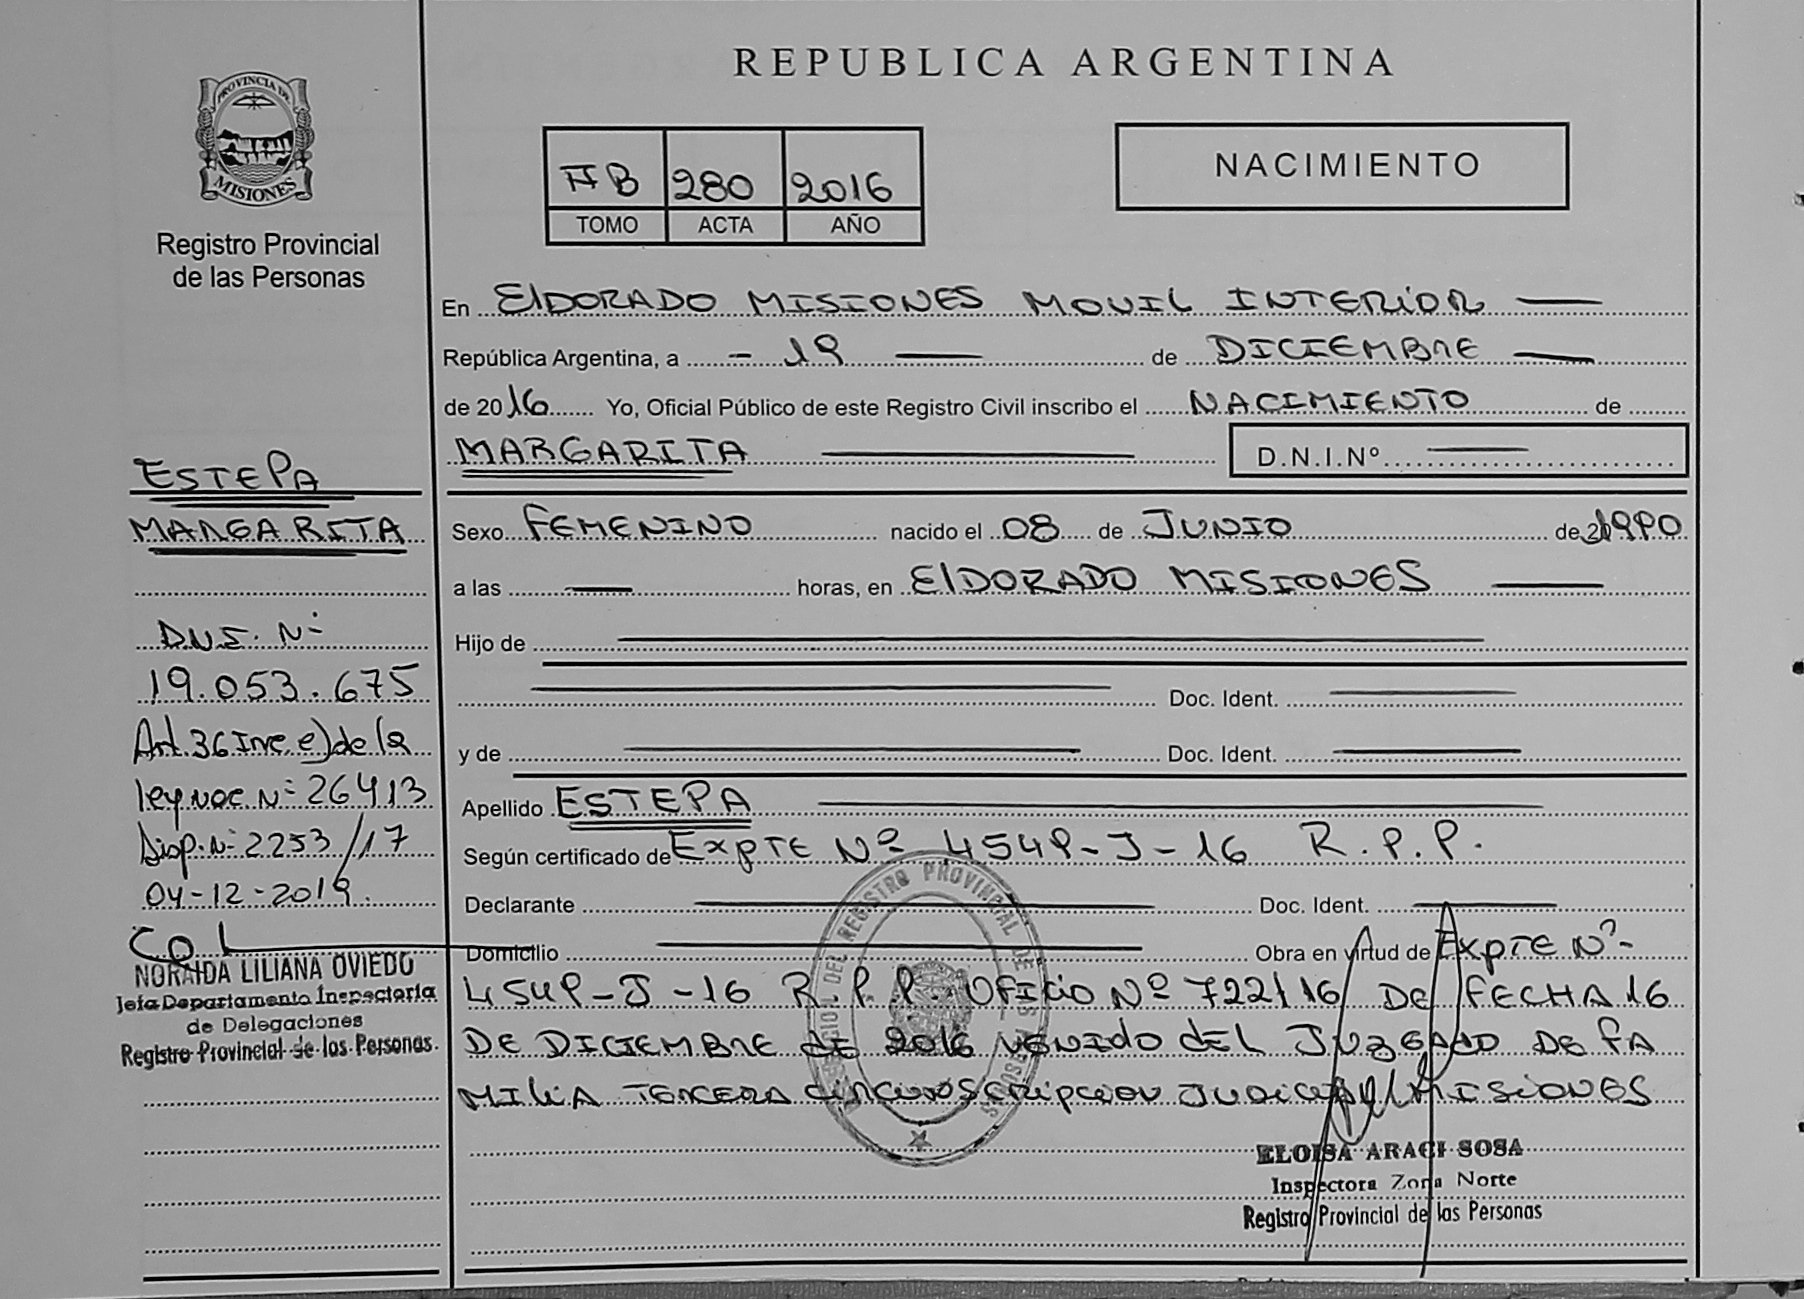 REPUBLICA ARGENTINA
PROVINCIA DE
MISIONES
Registro Provincial
de las Personas
AB 280 2016
TOMO ACTA AÑO
NACIMIENTO
En ElDORADO MISIONES MOVIL INTERIOR
República Argentina, a - 19 de DICIEMBRE
de 2016 Yo, Oficial Público de este Registro Civil inscribo el NACIMIENTO de
MARGARITA D.N.I.Nº
Sexo FEMENINO nacido el 08 de JUNIO de 1990
a las horas, en ElDORADO MISIONES
Hijo de
Doc. Ident.
y de Doc. Ident.
Apellido ESTEPA
Según certificado de Expte Nº 4549-J-16 R.P.P.
Declarante Doc. Ident.
Domicilio Obra en virtud de Expte Nº-
4549-J-16 R.P.P. Oficio Nº 722/16 DE FECHA 16
DE DICIEMBRE de 2016 VENIdo dEL JUZGADO DE FA
MILIA TERCERA CIRCUNSCRIPCION JUDICIAL MISIONES
ELOISA ARACI SOSA
Inspectora Zona Norte
Registro Provincial de las Personas
ESTEPA
MARGARITA
D.N.I. Nº
19.053.675
Art. 36 Inc. e) de la
ley NAC Nº 26413
Disp. Nº 2253/17
04-12-2019.
NORAIDA LILIANA OVIEDO
Jefa Departamento Inspectoria
de Delegaciones
Registro Provincial de las Personas
DEL REGISTRO PROVINCIAL DE LAS PERSONAS